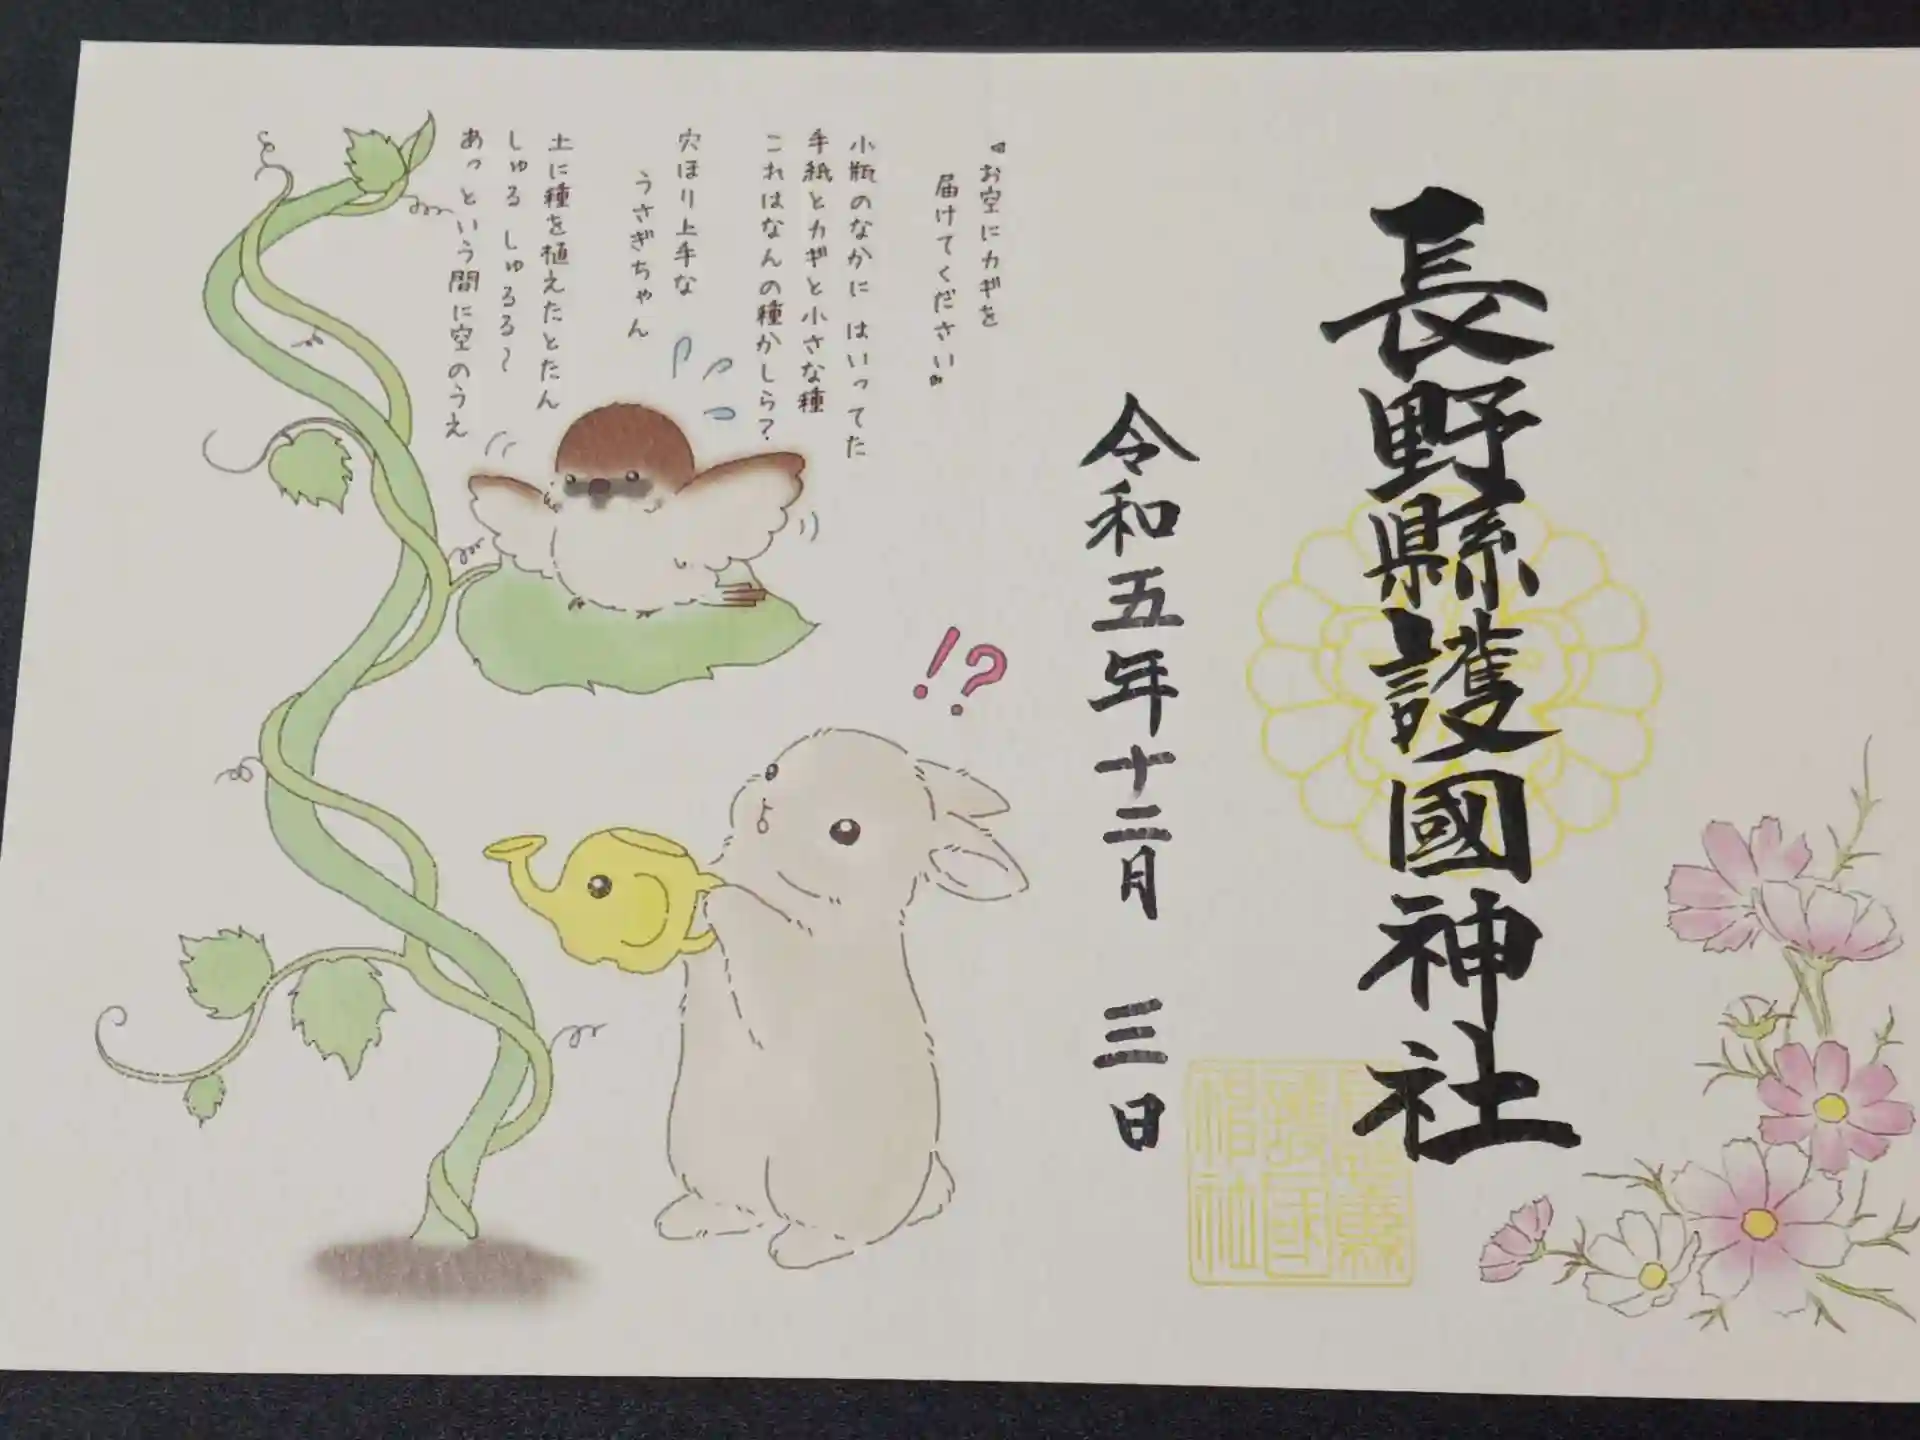 長野縣護國神社
令和五年十二月 三日
『お空にカギを
届けてください』
小瓶のなかに はいってた
手紙とカギと小さな種
これはなんの種かしら?
穴ほり上手な
うさぎちゃん
土に種を植えたとたん
しゅる しゅるる〜
あっという間に空のうえ
!?